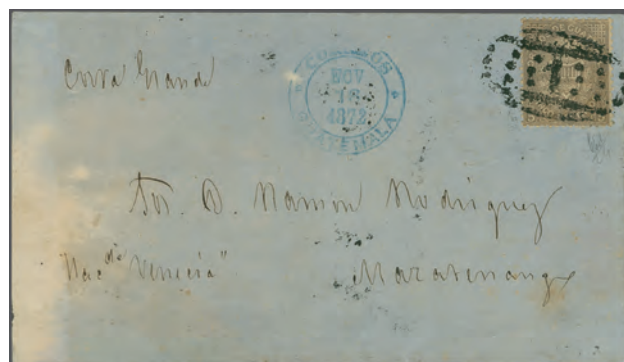 Costa Grande
CORREOS
NOV
16
1872
GUATEMALA
1
Sor. D. Ramon Rodriguez
"Hacda Venecia"
Mazatenango